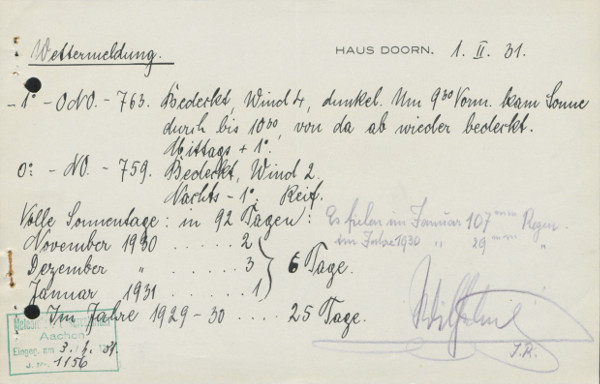 Wettermeldung.
HAUS DOORN. 1. II. 31.
- 1° - ONO. - 763. Bedeckt, Wind 4, dunkel. Um 9³⁰ Vorm. kam Sonne
durch bis 10³⁰, von da ab wieder bedeckt.
Mittags + 1°.
0° - NO. - 759. Bedeckt, Wind 2.
Nachts - 1°, Reif.
Volle Sonnentage: in 92 Tagen:
Es fielen im Januar 107 mm Regen
im Jahre 1930 " 29 mm "
November 1930 . . . . . . 2
Dezember " . . . . . . 3
6 Tage.
Januar 1931 . . . . . . 1
Im Jahre 1929-30 . . . . 25 Tage.
Wilhelm
I.R.
Aachen
Eingeg. am 3. 2. 31.
J. Nr. 1156